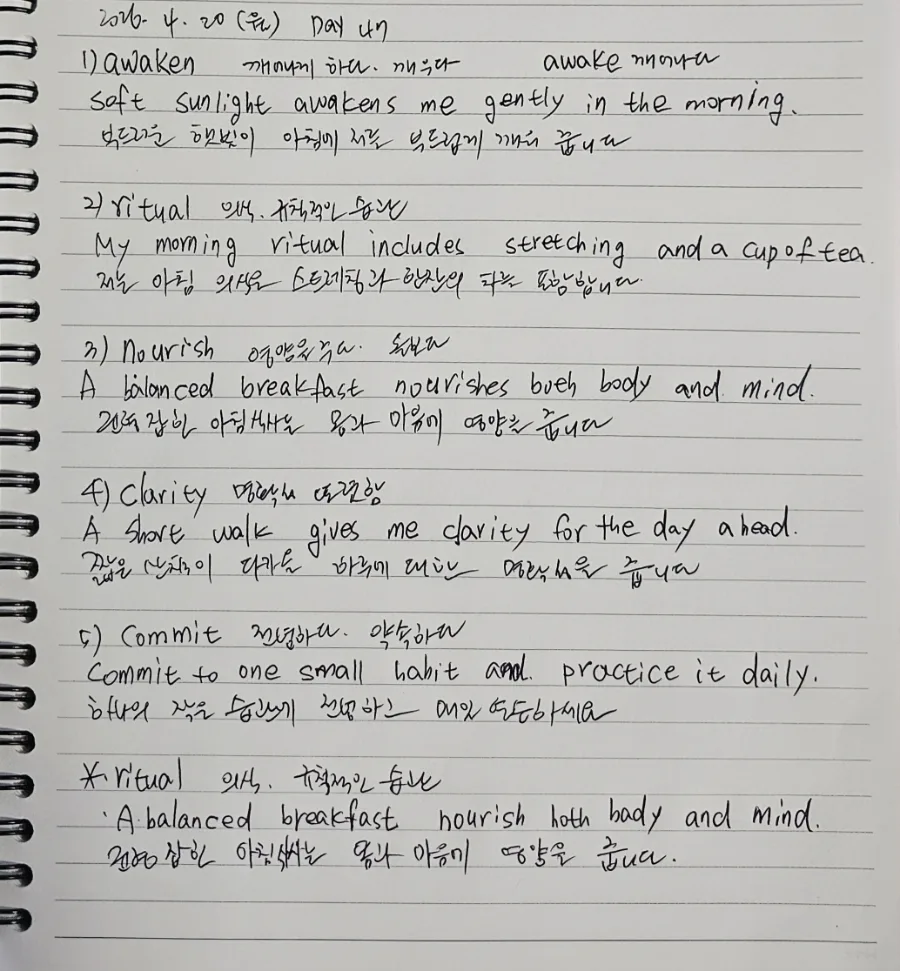 2026. 4. 20 (월) Day 47
1) awaken 깨어나게 하다. 깨우다 awake 깨어나다
Soft sunlight awakens me gently in the morning.
부드러운 햇빛이 아침에 저를 부드럽게 깨워 줍니다
2) ritual 의식. 규칙적인 습관
My morning ritual includes stretching and a cup of tea.
저는 아침 의식은 스트레칭과 한잔의 차를 포함합니다.
3) nourish 영양을 주다. 돌보다
A balanced breakfast nourishes both body and mind.
균형 잡힌 아침식사는 몸과 마음에 영양을 줍니다
4) Clarity 명확성 또렷함
A short walk gives me clarity for the day ahead.
짧은 산책이 다가올 하루에 대한 명확성을 줍니다
5) Commit 전념하다. 약속하다
Commit to one small habit and practice it daily.
하나의 작은 습관에 전념하고 매일 연습하세요
* ritual 의식. 규칙적인 습관
A balanced breakfast nourish both bady and mind.
균형 잡힌 아침식사는 몸과 마음에 영양을 줍니다.